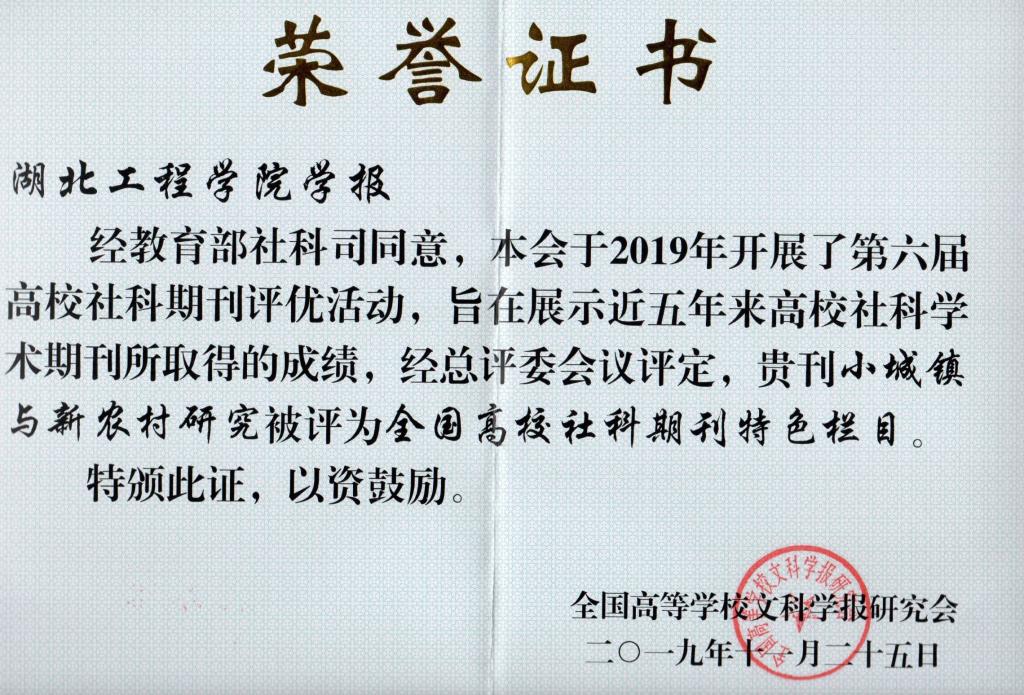 荣誉证书
湖北工程学院学报
经教育部社科司同意，本会于2019年开展了第六届
高校社科期刊评优活动，旨在展示近五年来高校社科学
术期刊所取得的成绩，经总评委会议评定，贵刊小城镇
与新农村研究被评为全国高校社科期刊特色栏目。
特颁此证，以资鼓励。
全国高等学校文科学报研究会
全国高等学校文科学报研究会
二〇一九年十一月二十五日